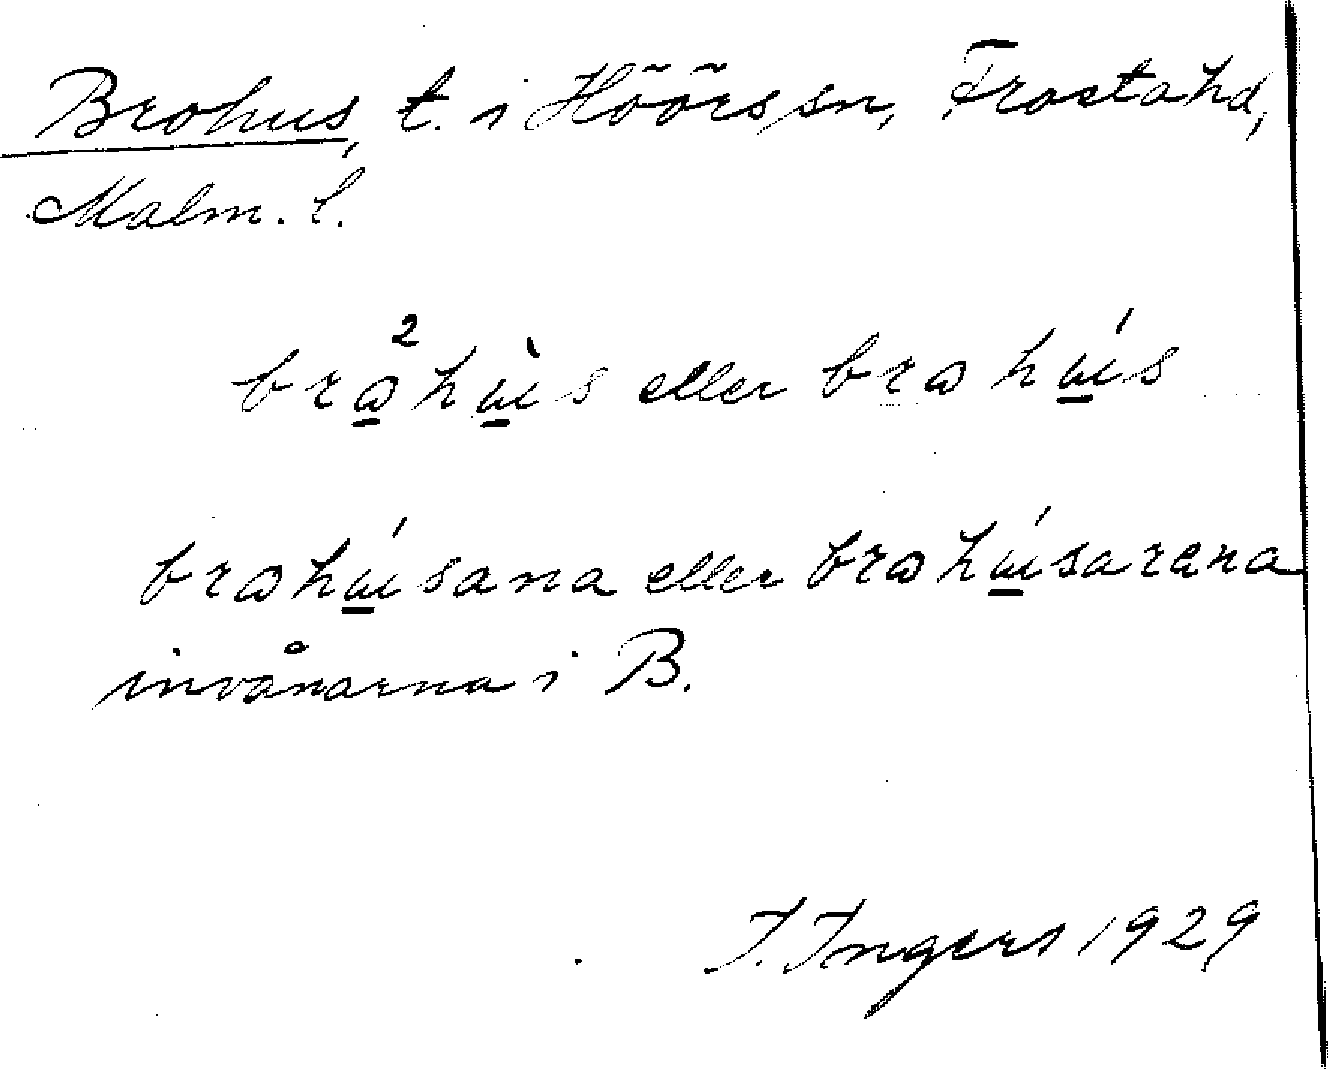 Brohus, t. i Höörs sn, Frosta hd,
Malm. l.
brω̲²hɯ̲̀s eller brωhɯ̲́s
brωhɯ̲́sana eller brωhɯ̲́sarena
invånarna i B.
I. Ingers 1929